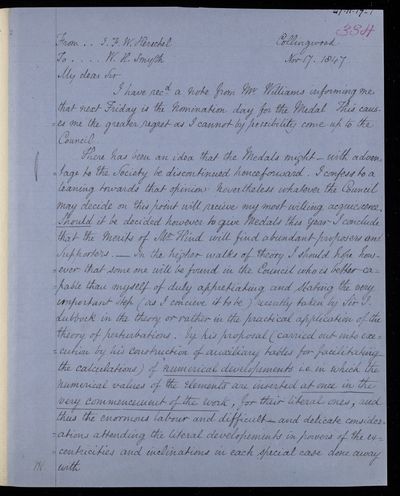 334
From . . J. F. W. Herschel Collingwood
To . . . . W. H. Smyth Nov. 17. 1847
My dear Sir
I have rec^d a note from Mr Williams informing me
that next Friday is the Nomination day for the Medal. This caus=
=es me the greater regret as I cannot by possibility come up to the
Council.
There has been an idea that the Medals might — with advan
=tage to the Society be discontinued henceforward. I confess to a
leaning towards that opinion nevertheless whatever the Council
may decide on this point will receive my most willing acquiescence.
Should it be decided however to give Medals this year I conclude
that the Merits of Mr Hind will find abundant proposers and
supporters. — In the higher walks of theory I should hope how=
=ever that some one will be found in the Council who is better ca=
=pable than myself of duly appreciating and stating the very
important step (as I conceive it to be) recently taken by Sir J.
Lubbock in the theory or rather in the practical application of the
theory of perturbations. by his proposal (carried out into exe=
=cution by his construction of auxiliary tables for facilitating
the calculations) of numerical developements i.e. in which the
numerical values of the elements are inserted at once in the
very commencement of the work, for their literal ones, and
thus the enormous labour and difficult — and delicate consider=
=ations attending the literal developements in powers of the ex=
=centricities and inclinations in each special case done away
with